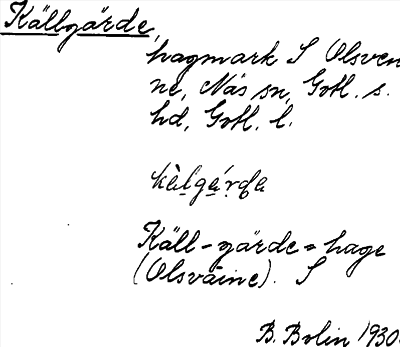 Källgärde,
hagmark S Olsven
ne, Näs sn, Gotl. s.
hd, Gotl. l.
kä̀lgárda
Käll-gärde = hage
(Olsväine). S
B. Bolin 1930.